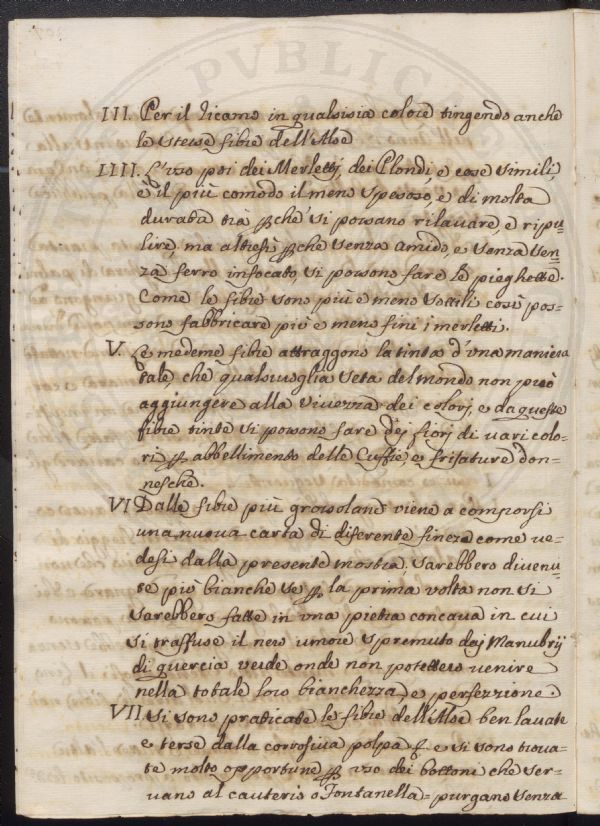 PVBLICA
III. Per il ricamo in qualsisia colore tingendo anche
le stesse fibre dell'Aloe
IIII. L'uso poi dei Merletti, dei Blondi, e cose simili,
è il più comodo il meno spesoso, e di molta
durata trà pche si possano rilavare, e ripu=
lire, ma altresì pche senza amido, e senza sen=
za ferro infocato, si possono fare le pieghette.
Come le fibre sono più e meno sottili così pos=
sono fabbricare più e meno fini i merletti.
V. Le medeme fibre attraggono la tinta d'una maniera
tale che qualsivoglia seta del mondo non può
aggiungere alla vivezza dei colorj, e da queste
fibre tinte si possono fare dej fiorj di vari colo=
ri p abbellimento delle Cuffie, e frisature don=
nesche.
VI Dalle fibre più grossolane viene a comporsi
una nuova carta di diferente finezza come ve=
desi dalla presente mostra. Sarebbero divenu=
te più bianche se p la prima volta non si
sarebbero fatte in una pietra concava in cui
si traffuse il nero umore spremuto daj Manubrij
di quercia verde onde non potettero venire
nella totale loro bianchezza, e perfezzione.
VII Si sono praticate le fibre dell'Aloe ben lavate
e terse dalla corrosiva polpa & e si sono trova=
te molto opportune p uso dei bottoni che ser=
vano al cauterio o Fontanella = purgano senza